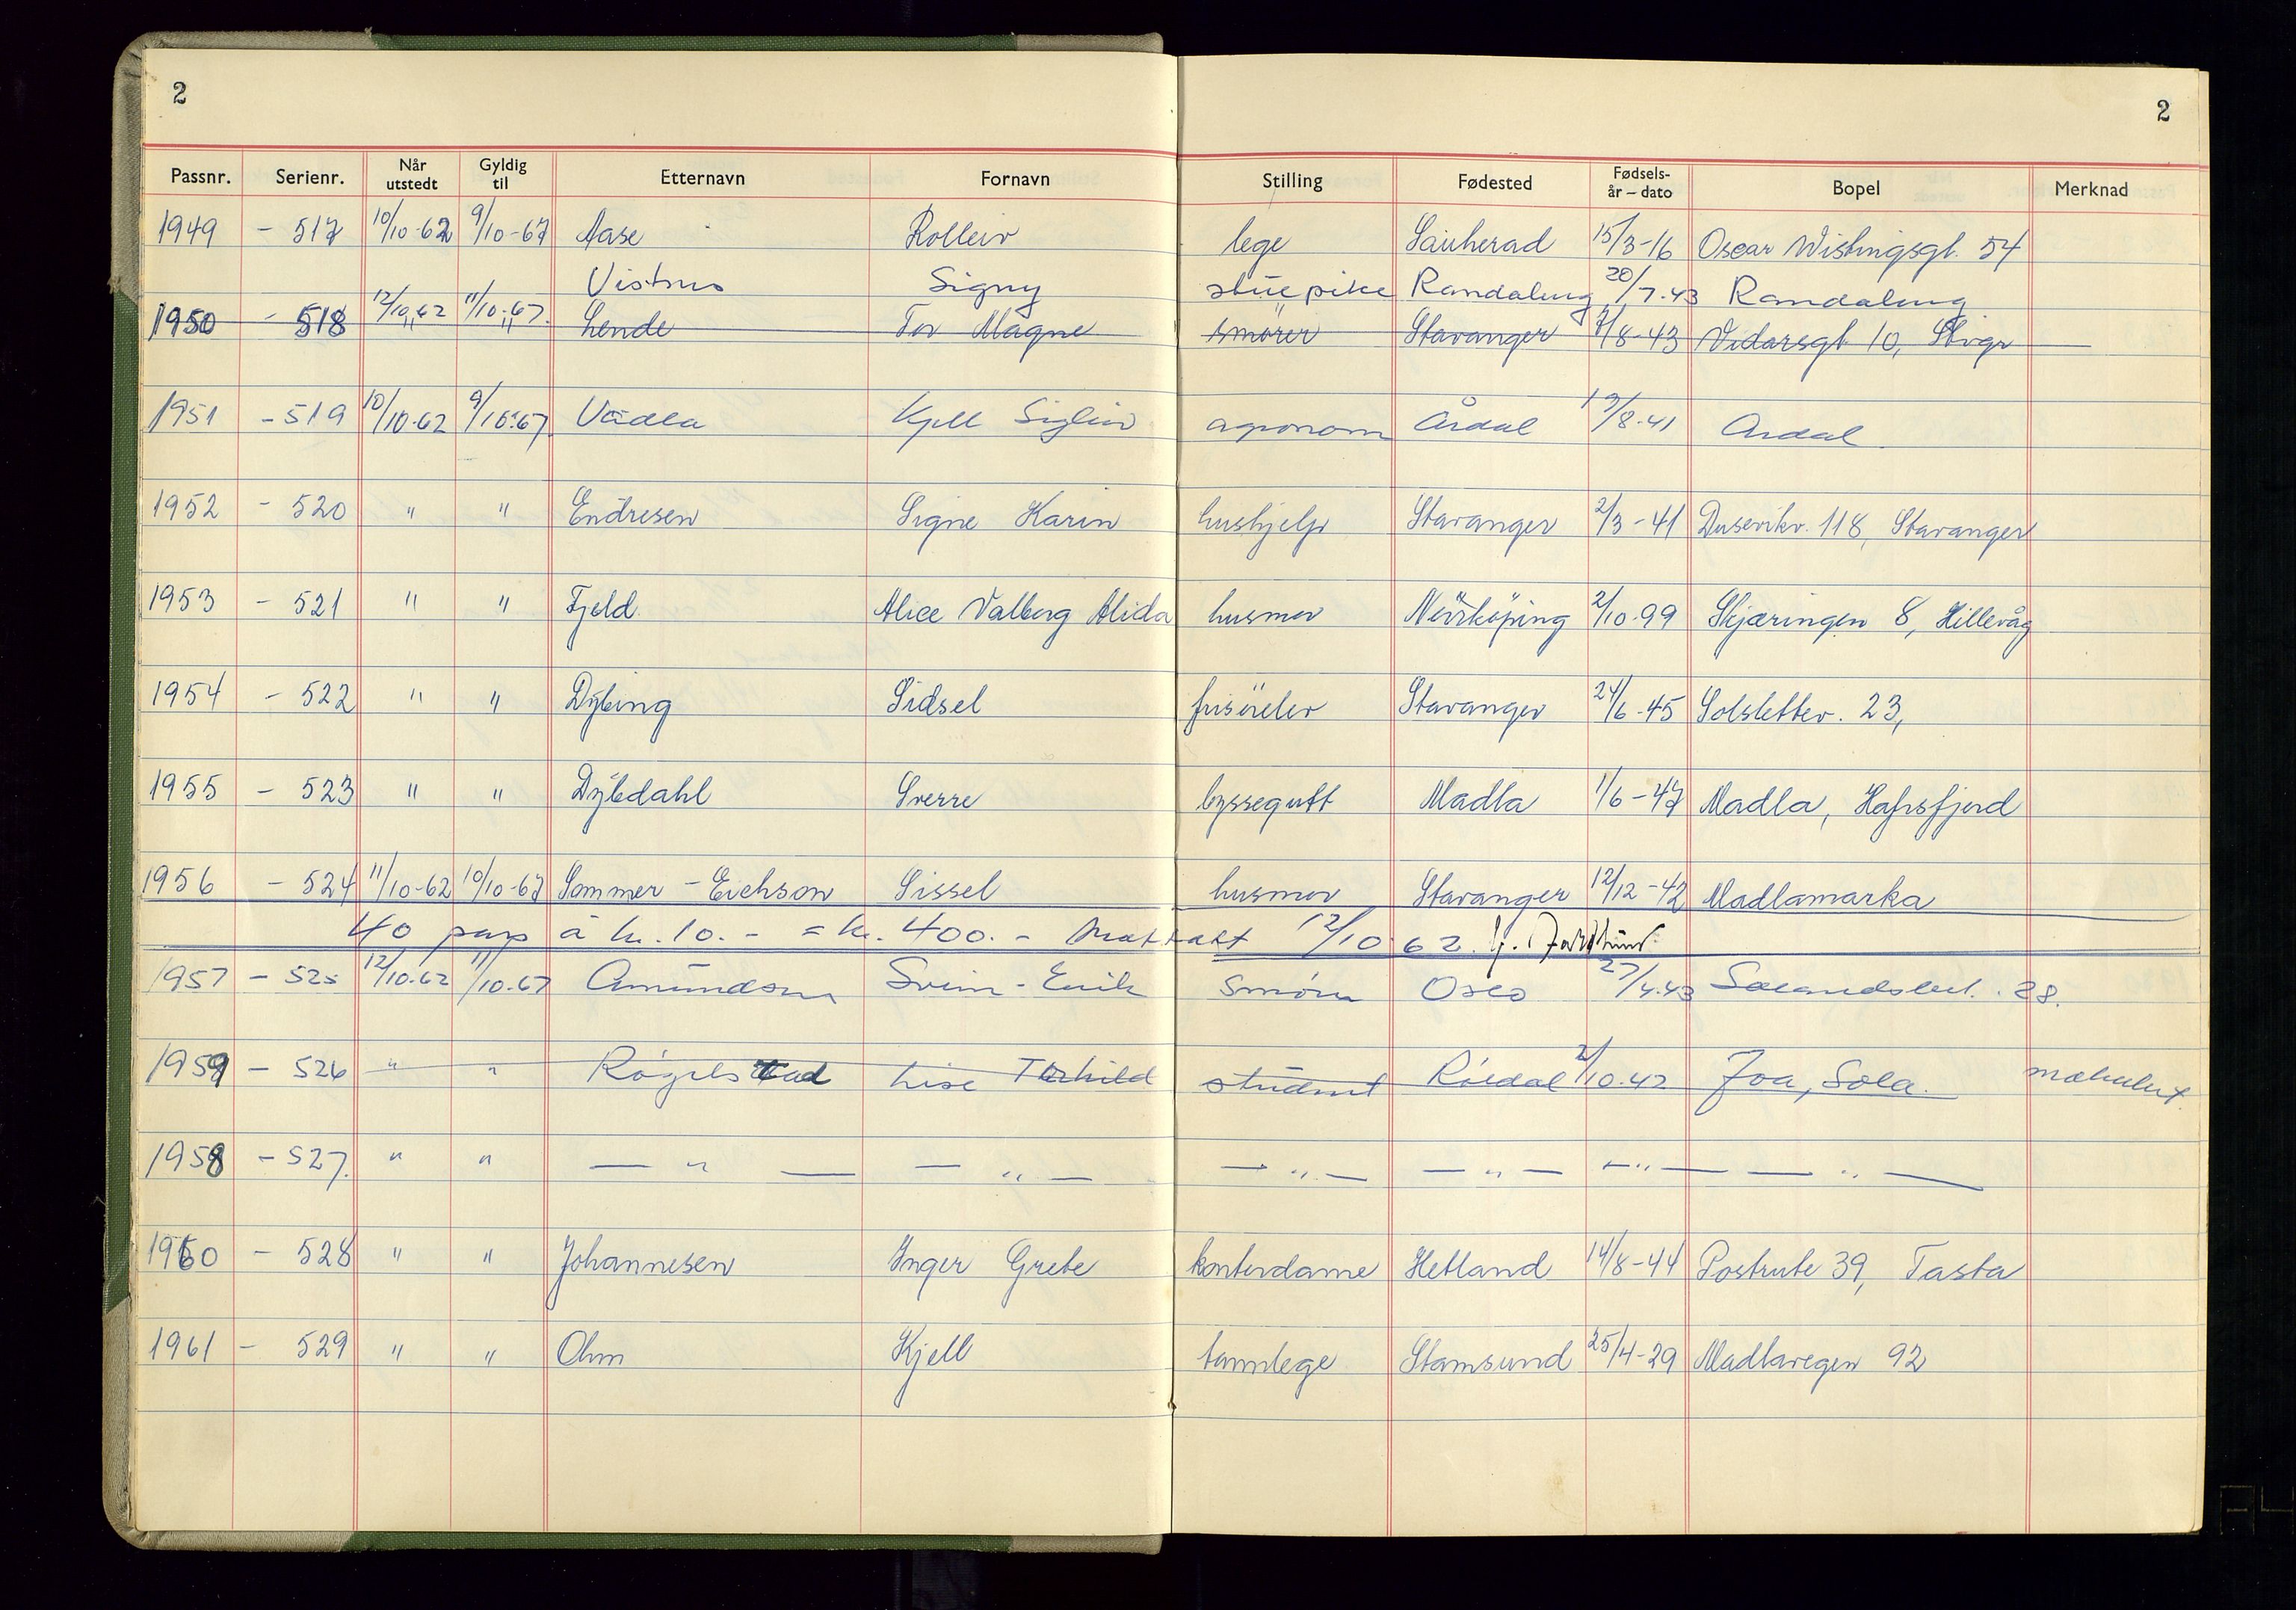 2 2
Passnr. Serienr. Når utstedt Gyldig til Etternavn Fornavn Stilling Fødested Fødsels- år – dato Bopel Merknad
1949 - 517 10/10-62 9/10-67 Aase Rolleiv lege Sauherad 15/3-16 Oscar Wistingsgt. 54
12/10.62 11/10.67. Vistnes Signy stuepike Randaberg 20/7.43 Randaberg
1950 - 518 " " Lende Tor Magne smører Stavanger 8-43 Vidarsgt 10, Stvgr
1951 - 519 10/10.62 9/10.67 Vadla Kjell Sigleiv agronom Årdal 19/8.41 Årdal
1952 - 520 " " Endresen Signe Karin hushjelp Stavanger 2/3-41 Dusevikv. 118, Stavanger
1953 - 521 " " Fjeld Alice Valborg Alida husmor Norrköping 2/10.99 Skjæringen 8, Hillevåg
1954 - 522 " " Dybing Sidsel frisörelev Stavanger 24/6-45 Solslettev. 23,
1955 - 523 " " Dybdahl Sverre byssegutt Madla 1/6-47 Madla, Hafrsfjord
1956 - 524 11/10-62 10/10-67 Sommer-Erichson Sissel husmor Stavanger 12/12-42 Madlamarka
40 pass à kr. 10.- = kr. 400.- Mottatt 12/10 62.
1957 - 525 12/10.62 11/10.67 Amundsen Svein-Erik Smører Oslo 27/4.43 28.
1959 - 526 " " Røgelstad Lise Torhild student 2/10.42 Joa, Sola. makulert
1958 - 527. " " — " — — " — — " — — " — — " — — " —
1960 - 528 " " Johannesen Inger Grete kontordame Hetland 14/8-44 Postrute 39, Tasta
1961 - 529 " " Ohm Kjell tannlege Stamsund 25/4-29 Madlavegen 92